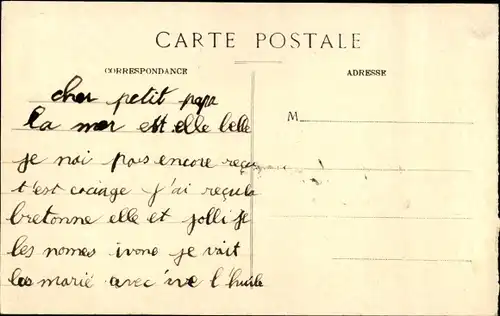 CARTE POSTALE
CORRESPONDANCE
ADRESSE
M
cher petit papa
la mer est elle belle
je nai pas encore reçu
t'est cociage j'ai reçu la
bretonne elle et jolli je
les nomes ivone je vait
les marié avec ive l'huile